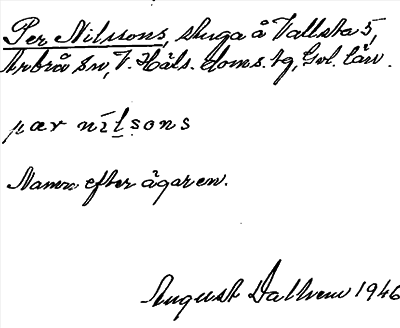 Per Nilssons, stuga å Vallsta 5,
Arbrå sn, V. Häls. doms. tg, Gvl. län.
pær nìl̲sons
Namn efter ägaren.
August Dallven 1946